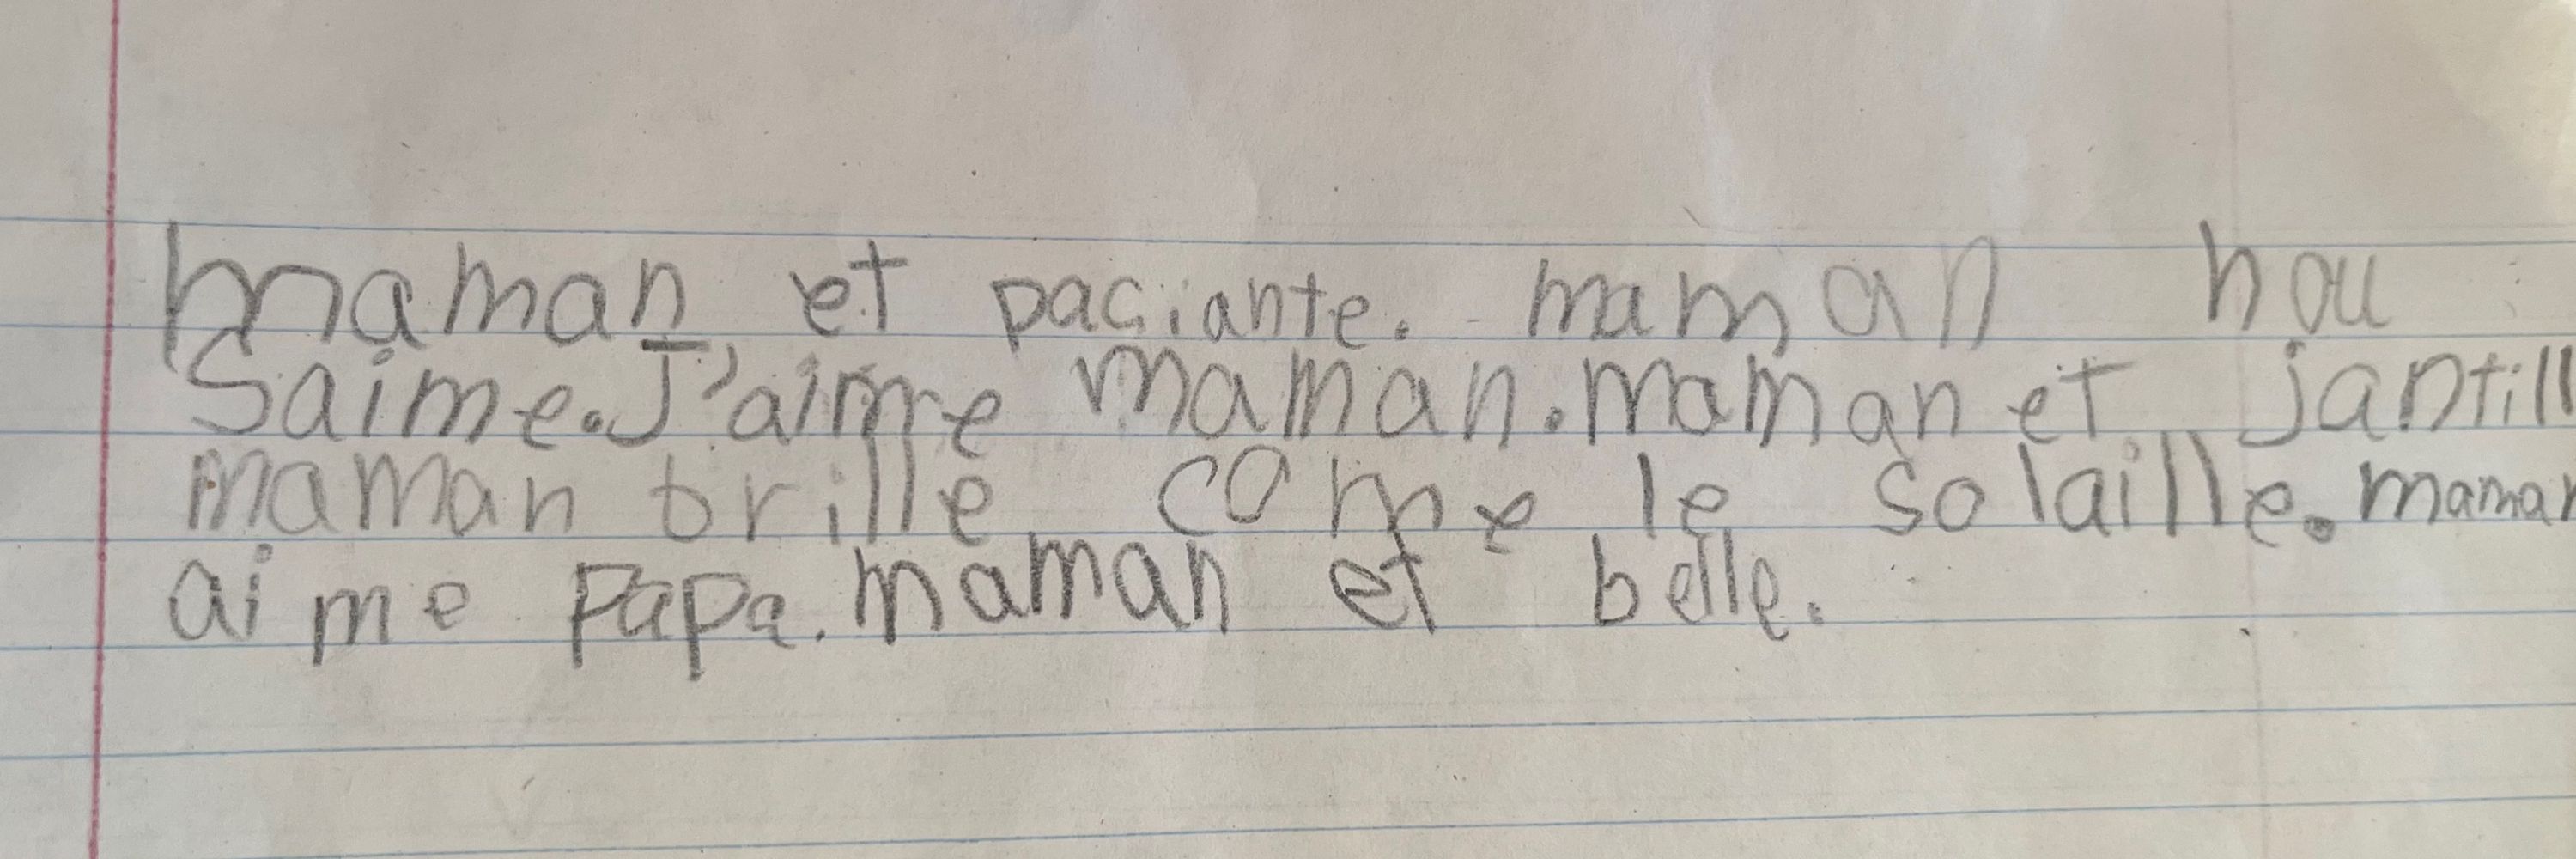 maman et paciante. maman nou
Saime. J'aime maman. maman et jantill
maman brille come le solaille. maman
aime Papa. maman et belle.